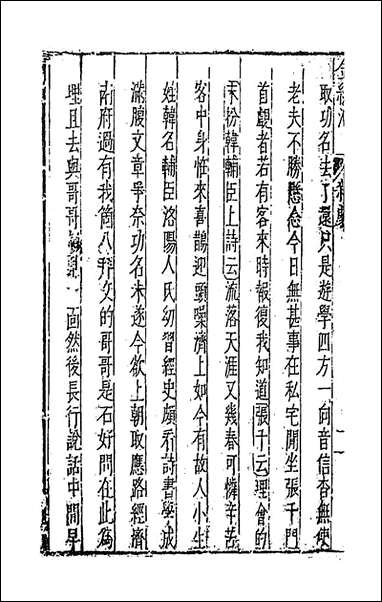 金線池 雜劇 二
取功名去了還只是遊學四方一向音信杳無使
老夫不勝懸念今日無甚事在私宅閒坐張千門
首覷者若有客來時報復我知道張千云理會的
末扮韓輔臣上詩云流落天涯又幾春可憐辛苦
客中身怪來喜鵲迎頭噪濟上如今有故人小生
姓韓名輔臣洛陽人氏幼習經史頗看詩書學成
滿腹文章爭奈功名未遂今欲上朝取應路經濟
南府過有我箇八拜交的哥哥是石好問在此為
理且去與哥哥相見一面然後長行說話中間早